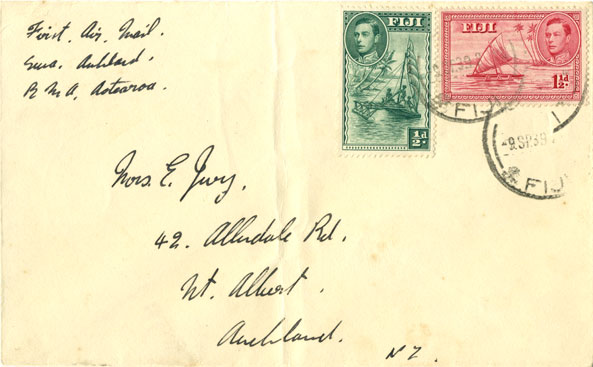 First. Air. Mail.
Suva. Auckland.
R M A. Aotearoa.
FIJI
½d.
FIJI
1½d.
FIJI
9 SP 39
FIJI
Mrs. E.
42. Allendale Rd.
Mt. Albert.
Auckland.
N Z.